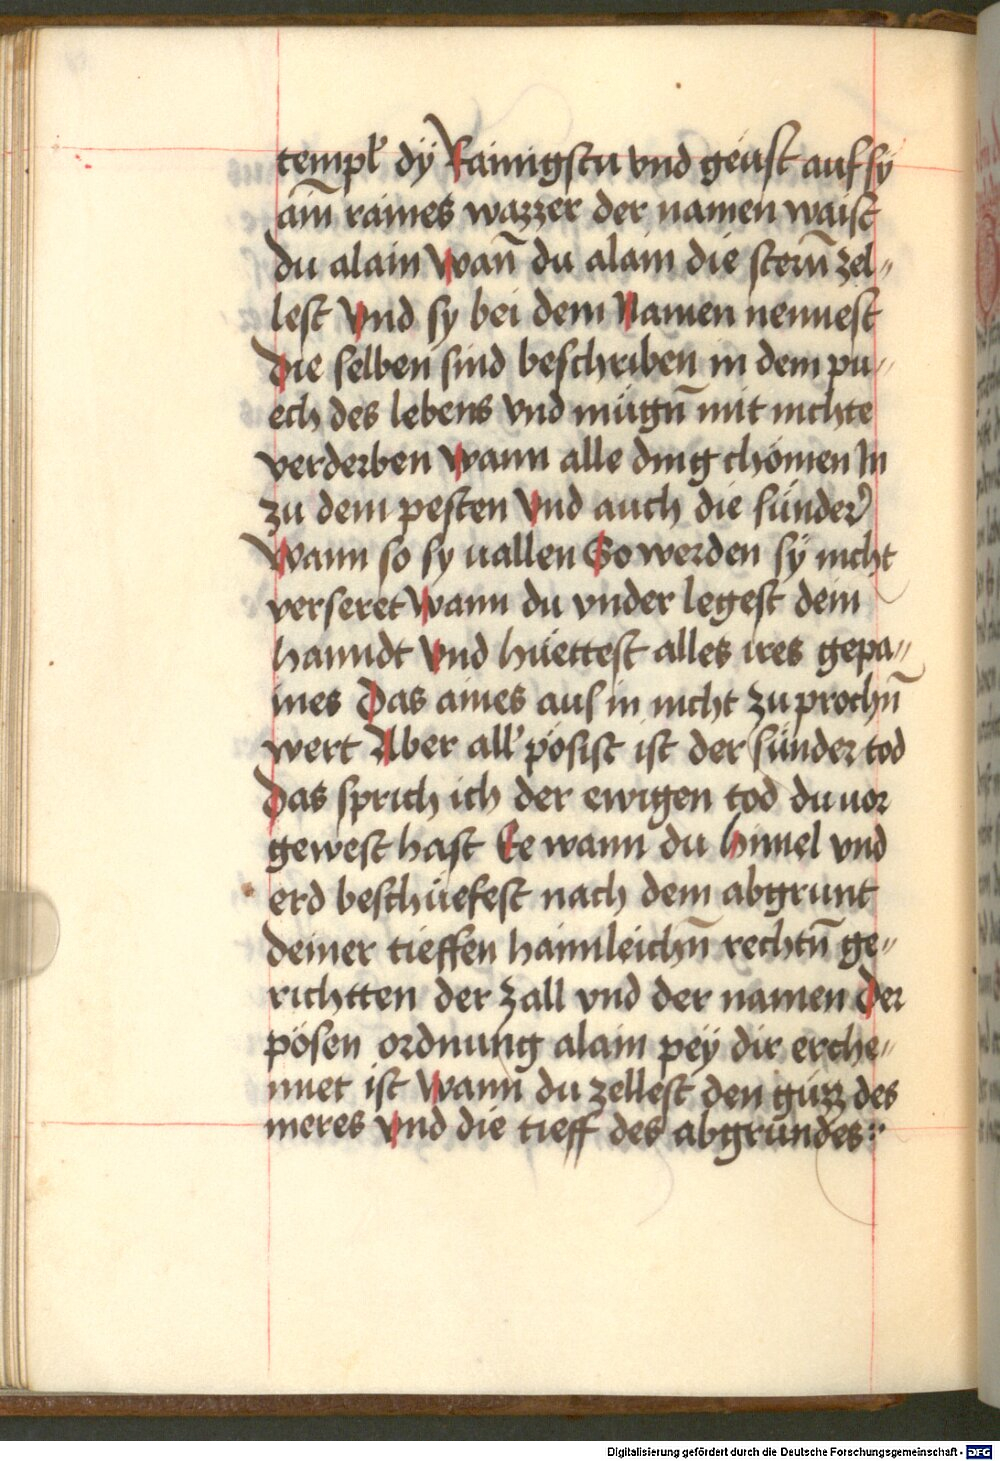 templ̕ dÿ Rainigstu vnd geüst auf sy
aim̄ raines wazzer der namen waist
du alain Wan̄ du alain die stern̄ zel〃
lest Vnd sy bei dem Namen nennest
Die selben sind beschriben in dem pu〃
ech des lebens vnd mügn̄ mit nichte
verderben Wann alle ding chömen In
zu dem pesten Vnd auch die sünder
Wann so sy uallen So werden sÿ nicht
verseret Wann du vnder legest dein
hanndt Vnd hüettest alles ires gepa〃
ines Das aines aus in nicht zu prochn̄
wert Aber all̕ pösist ist der sünder tod
Das sprich ich der ewigen tod du uor
gewest hast Ee wann du himel vnd
erd beschüefest nach dem abgrunt
deiner tieffen haimleichn̄ rechtn̄ ge〃
richtten der zall vnd der namen Der
pösen ordnung alain peÿ dir erche〃
nnet ist Wann du zellest den güzz des
meres Vnd die tieff des abgrundes
Digitalisierung gefördert durch die Deutsche Forschungsgemeinschaft - DFG